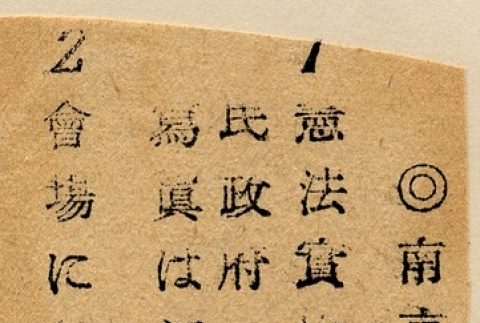 ◎南京
1憲法實
民政府
寫眞は
2會場に